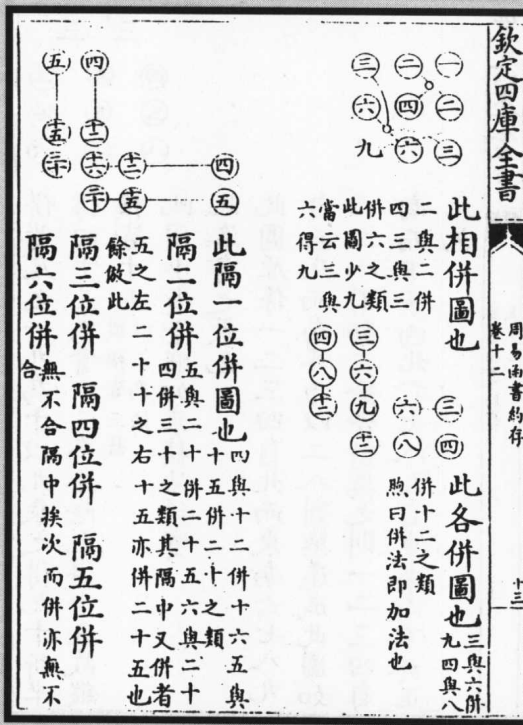 欽定四庫全書
周易函書約存
卷十二
十三
一
二
三
二
四
六
三
六
九
此相併圖也
二與二併
四二與三
併六之類
此圖少九
當云三與
六得九
三
四
六
八
三
六
九
十二
四
八
十二
此各併圖也三與六併
九四與八
併十二之類
煦曰併法即加法也
四
五
十二
十五
四
十二
十六
二十
五
十五
二十
此隔一位併圖也四與十二併十六五與
十五併二十之類
隔二位併五與二十併二十五六與二十
四併三十之類其隔中又併者
五之左二十十之右十五亦併二十五也
餘倣此
隔三位併 隔四位併 隔五位併
隔六位併無不合隔中挨次而併亦無不
合